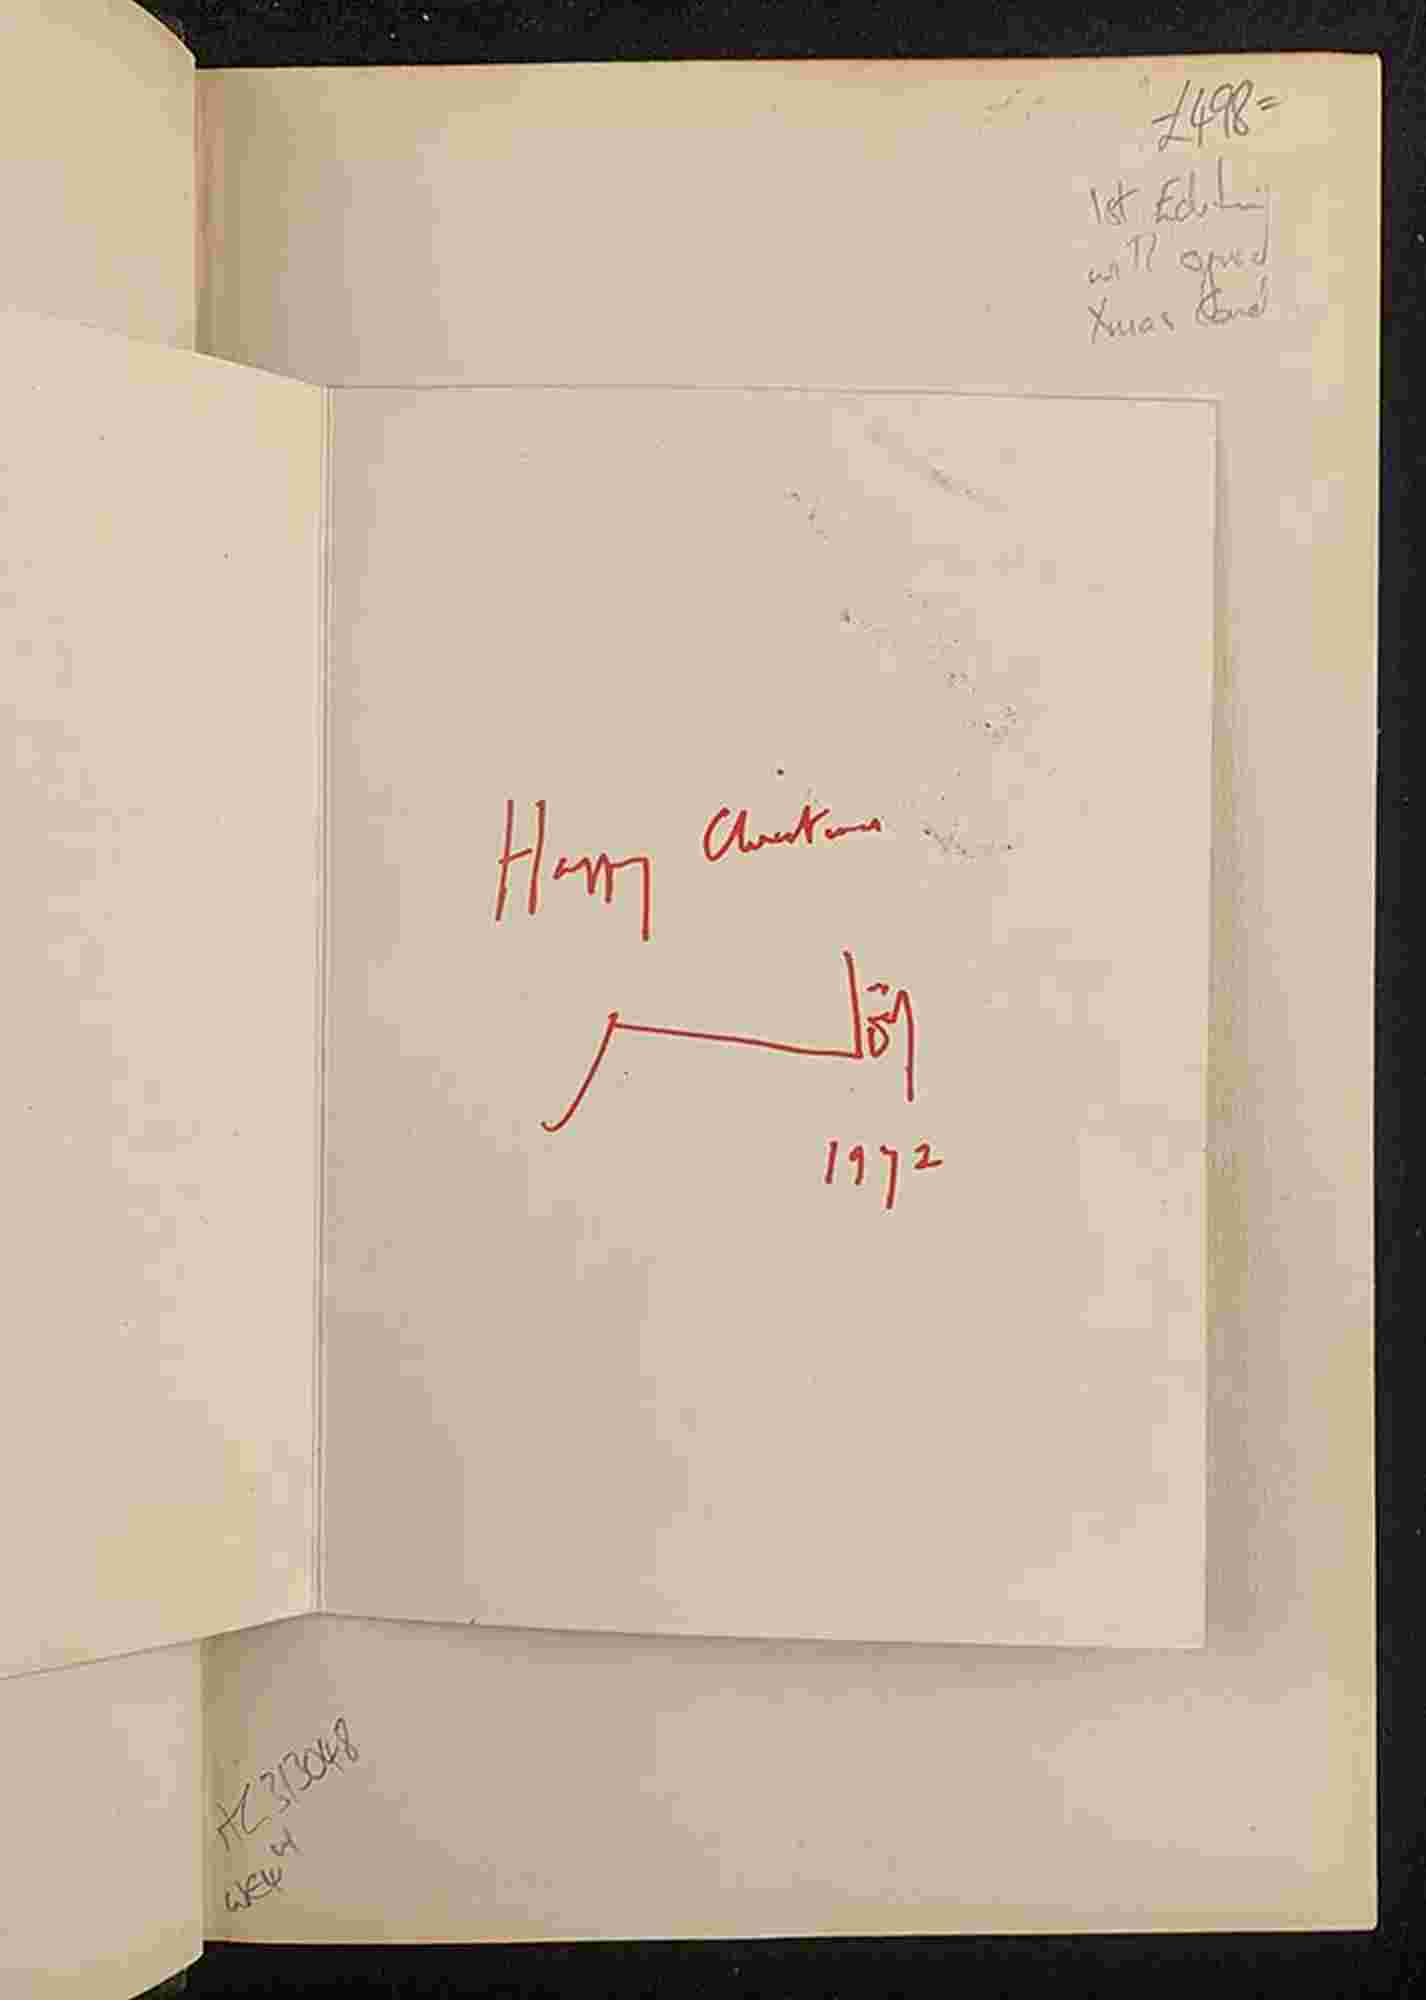 £498=
1st Edition
with signed
Xmas Card
Happy Christmas
1972
AC313048